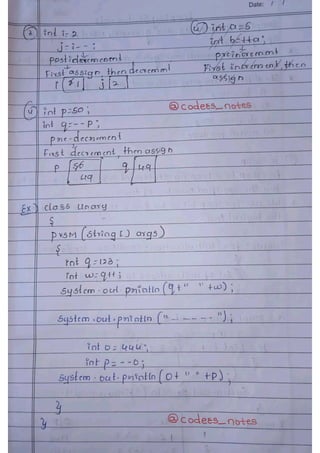 Date: / /
② int i=2
j=i--;
postdecrement
First assign then decrement
i 2 1 j 2
int a=5
int b=++a;
preincrement
First increment, then
assign
④ int p=50;
@codess_notes
int q=--p;
pre-decrement
First decrement then assign
p 50 q 49
49
Ex) class Unary
{
PVSM (String[] args)
{
int q=123;
int w=q++;
System.out.println(q+" "+w);
System.out.println("------");
int o=444;
int p=--o;
System.out.println(o+" "+p);
}
}
@codess_notes